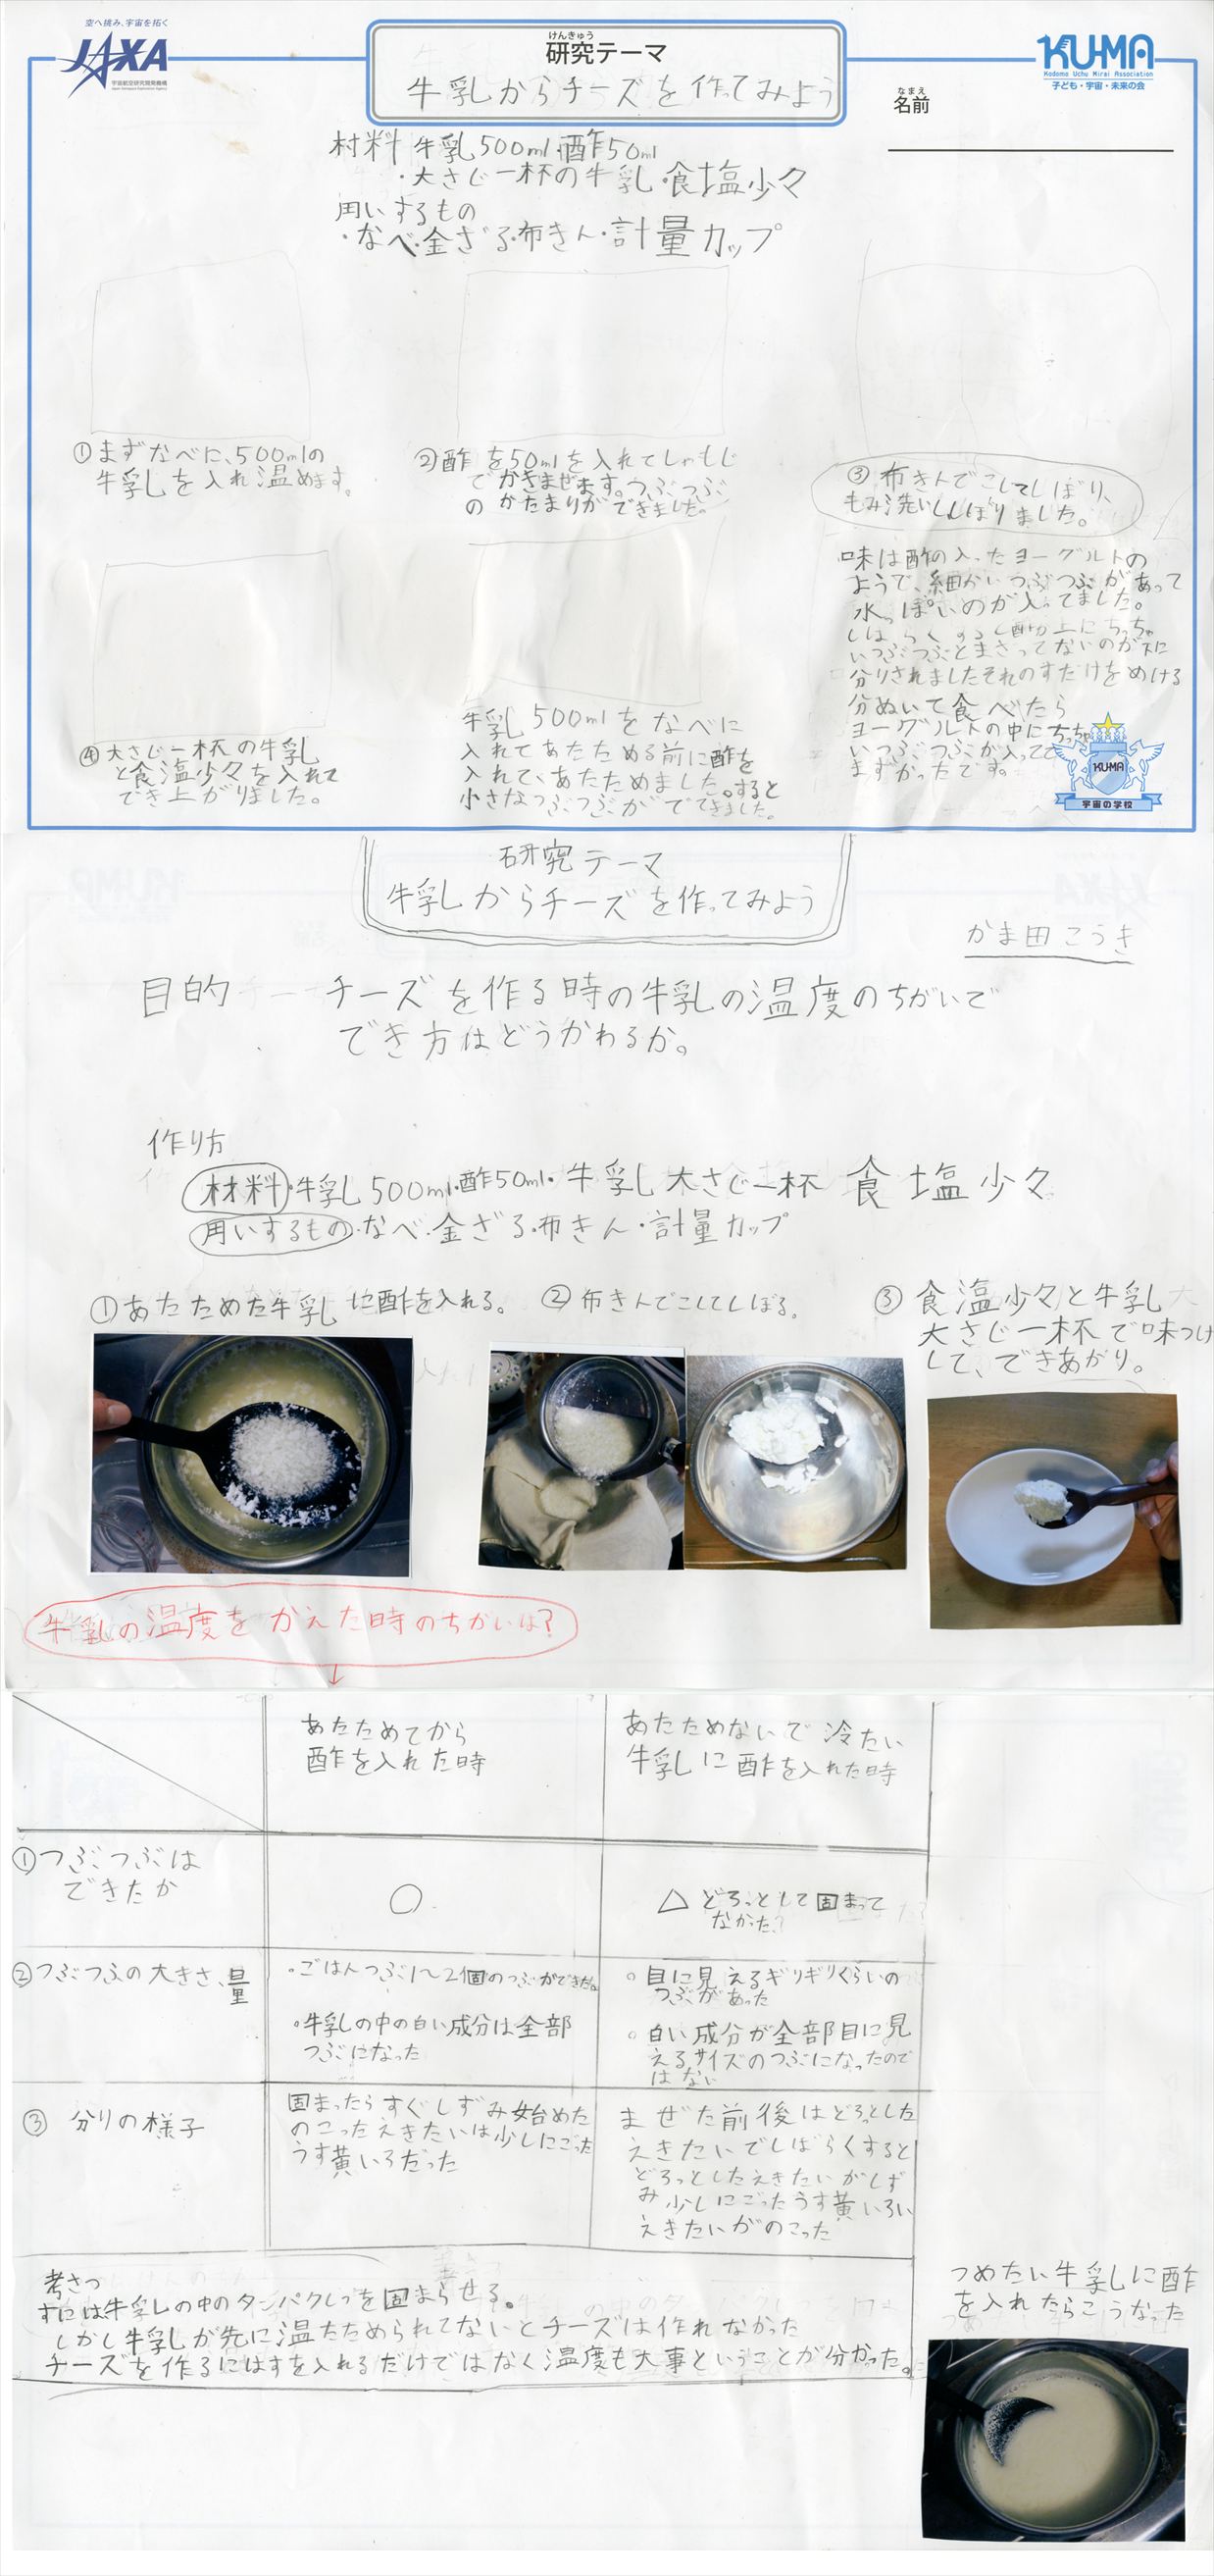 空へ挑み、宇宙を拓く
JAXA
宇宙航空研究開発機構
Japan Aerospace Exploration Agency
けんきゅう
研究テーマ
牛乳からチーズを作ってみよう
KU-MA
Kodomo Uchu Mirai Association
子ども・宇宙・未来の会
なまえ
名前
材料 牛乳500ml・酢50ml
・大さじ一杯の牛乳・食塩少々
用いするもの
・なべ・金ざる・布きん・計量カップ
①まずなべに、500mlの
牛乳を入れ温めます。
②酢を50mlを入れてしゃもじ
でかきまぜます。つぶつぶ
のかたまりができました。
③布きんでこしてしぼり、
もみ洗いししぼりました。
④大さじ一杯の牛乳
と食塩少々を入れて
でき上がりました。
牛乳500mlをなべに
入れてあたためる前に酢を
入れて、あたためました。すると
小さなつぶつぶがでてきました。
味は酢の入ったヨーグルトの
ようで、細かいつぶつぶがあって
水っぽいのが入ってました。
しばらくすると酢が上にちっちゃ
いつぶつぶとまざってないのが下に
分りされましたそれのすだけをぬける
分ぬいて食べたら
ヨーグルトの中にちっちゃ
いつぶつぶが入ってて
まずかったです。
KUMA
宇宙の学校
研究テーマ
牛乳からチーズを作ってみよう
かま田こうき
目的 チーズを作る時の牛乳の温度のちがいで
でき方はどうかわるか。
作り方
材料・牛乳500ml・酢50ml・牛乳大さじ一杯 食塩少々
用いするもの・なべ・金ざる・布きん・計量カップ
①あたためた牛乳に酢を入れる。
②布きんでこしてしぼる。
③食塩少々と牛乳
大さじ一杯で味つけ
して、できあがり。
牛乳の温度をかえた時のちがいは?
↓
あたためてから
酢を入れた時
あたためないで冷たい
牛乳に酢を入れた時
①つぶつぶは
できたか
○
△どろっとして固まって
なかった?
②つぶつぶの大きさ、量
・ごはんつぶ1〜2個のつぶができた。
・牛乳の中の白い成分は全部
つぶになった
・目に見えるギリギリくらいの
つぶがあった
・白い成分が全部目に見
えるサイズのつぶになったので
はない
③ 分りの様子
固まったらすぐしずみ始めた
のこったえきたいは少しにごった
うす黄いろだった
まぜた前後はどろっとした
えきたいでしばらくすると
どろっとしたえきたいがしず
み少しにごったうす黄いろい
えきたいがのこった
考さつ
すには牛乳の中のタンパクしつを固まらせる。
しかし牛乳が先に温ためられてないとチーズは作れなかった
チーズを作るにはすを入れるだけではなく温度も大事ということが分かった。
つめたい牛乳に酢
を入れたらこうなった